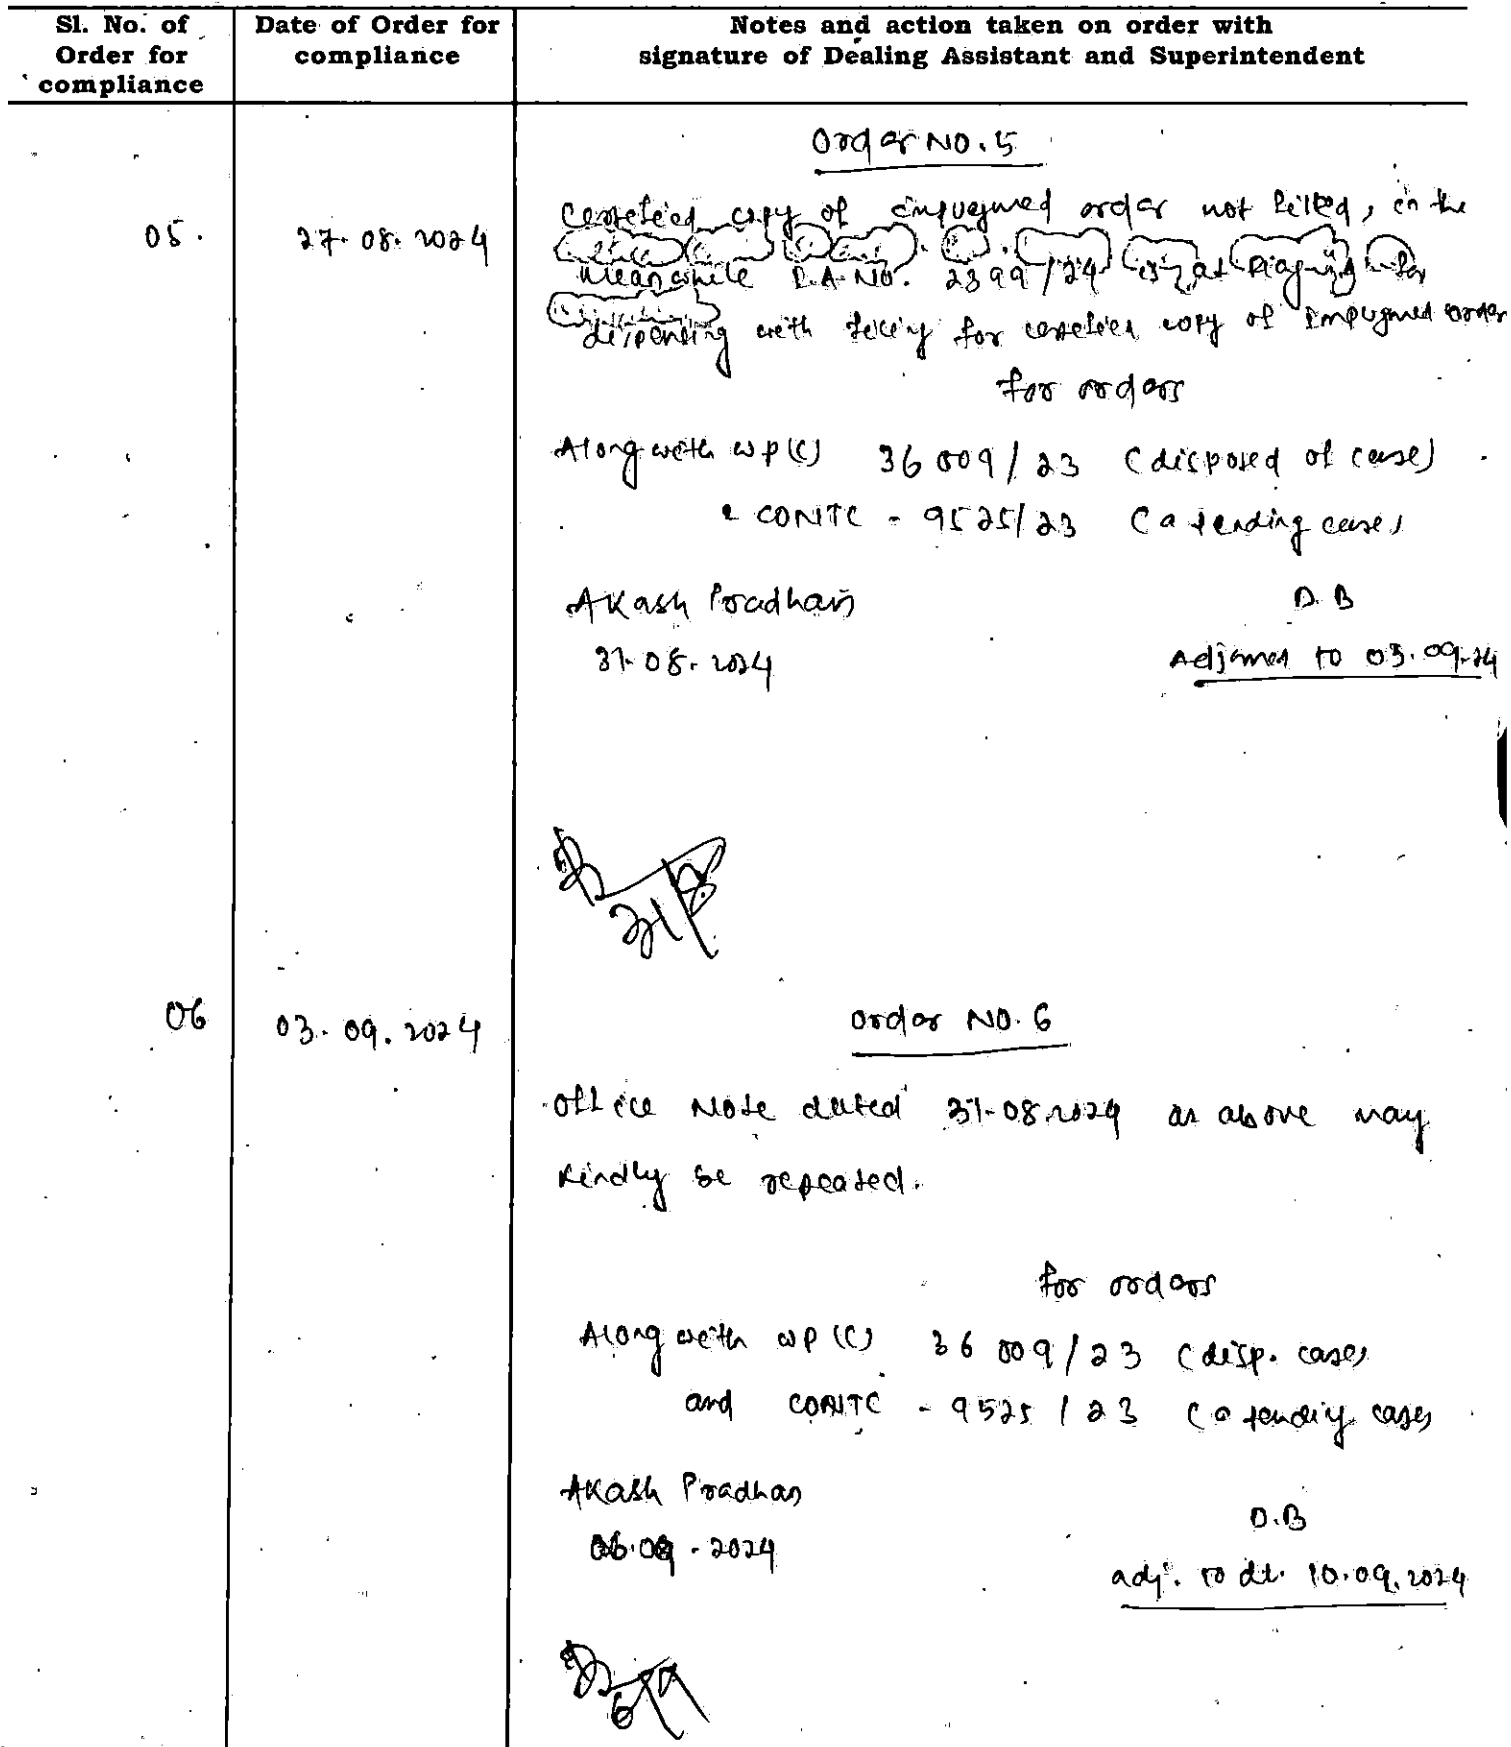 Sl. No. of Order for compliance
Date of Order for compliance
Notes and action taken on order with signature of Dealing Assistant and Superintendent
Order NO. 5
05.
27.08.2024
copy of impugned order not filed, in the
Meanwhile I.A. NO. 2399/24 is at for
dispensing with filing for certified copy of Impugned order
for orders
Along with WP(C) 36009/23 (disposed of case)
& CONTC - 9525/23 (a pending case)
Akash Pradhan
31.08.2024
D.B
Adjorned to 03.09.24
31/8
06
03.09.2024
order NO. 6
Office Note dated 31-08.2024 as above may
kindly be repeated.
for orders
Along with WP(C) 36009/23 (disp. case)
and CONTC - 9525/23 (a pending case)
Akash Pradhan
06.09.2024
D.B
adj. to dt. 10.09.2024
6/9